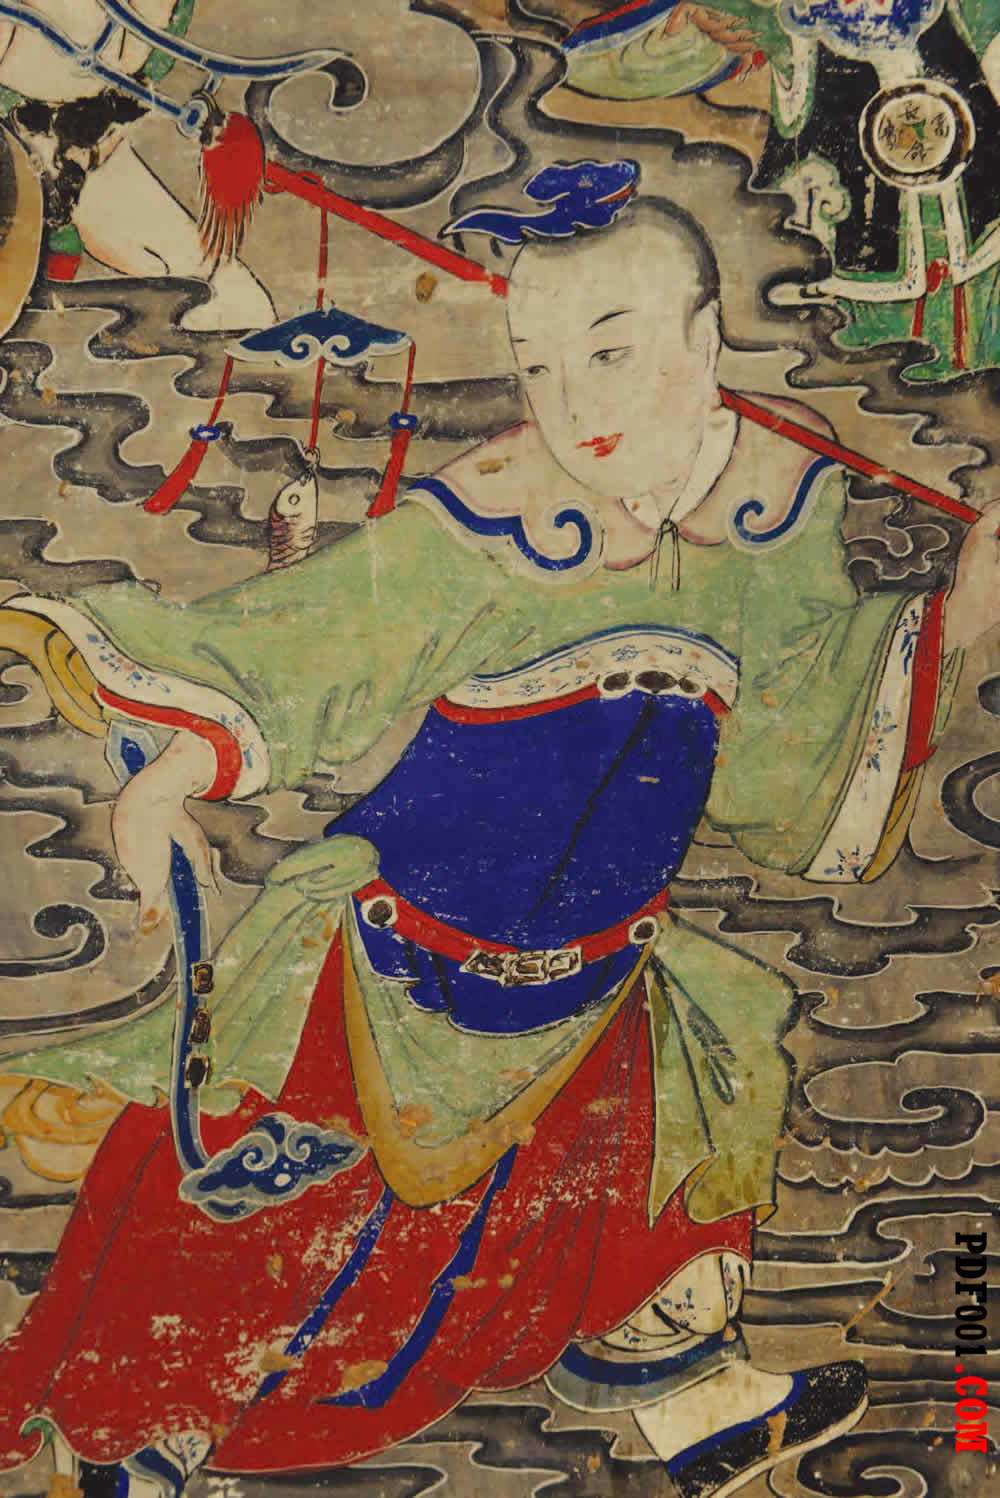 長命富貴
PDF001.COM